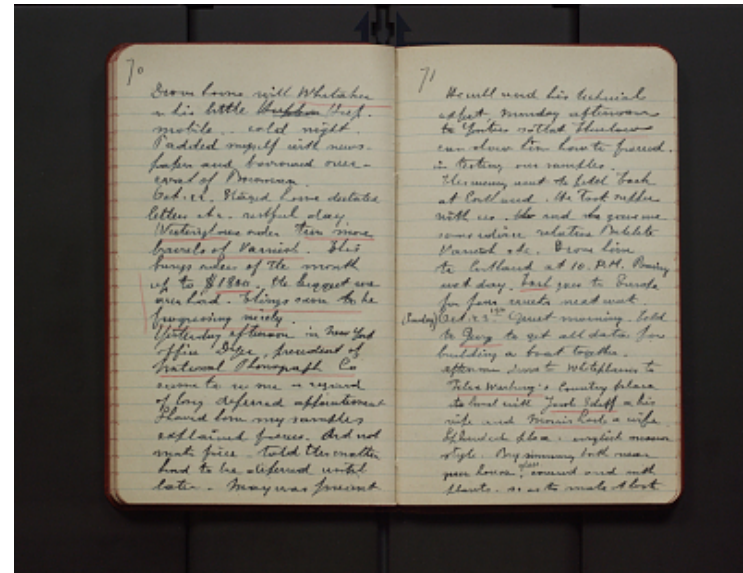 70
Drove home with Whitaker
in his little Hupp-
mobile. cold night.
Padded myself with news-
paper and borrowed over-
coat of
Oct. 22. Stayed home dictated
letters etc. restful day.
Westinghouse order two more
barrels of Varnish. This
brings orders of the month
up to $1800. the biggest we
ever had. Things seem to be
progressing nicely.
Yesterday afternoon in New York
office Dyer, president of
National Phonograph Co
came to see me in regard
of long deferred appointment
Showed him my samples
explained process. Did not
make price. told the matter
had to be deferred until
later. May was present
71
He will send his technical
expert, Monday afternoon
to Yonkers so that Thurlow
can show him how to proceed
in testing our samples.
This evening went to
at Cortland. He took supper
with us. He and
relative Bakelite
Varnish etc. Drove him
to Cortland at 10. P.M.
next day. goes to Europe
for few weeks next week.
(Sunday) Oct. 23. Quiet morning. told
to George to get all data for
building a boat together.
afternoon drove to Whiteplains to
Felix Warburg's Country place
to meet with Jacob Schiff and his
wife and Morris Loeb and wife.
Splendid place. english manor
style. Big swimming bath near
green house, glass covered and with
plants. so as to make it look